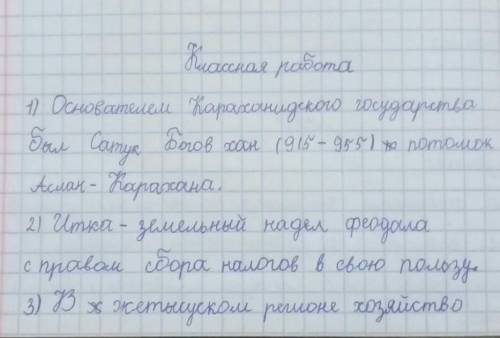 Классная работа
1) Основателем Караханидского государства
был Сатук Богов хан (915-955) потомок
Аслан-Карахана.
2) Итка - земельный надел феодала
с правом сбора налогов в свою пользу.
3) В ж жетысуском регионе хозяйство